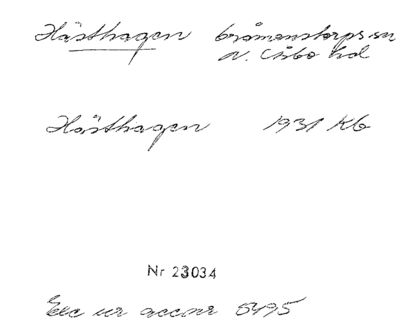 Hästhagen Gråmanstorps sn
N. Åsbo hd
Hästhagen 1931 Kb
Nr 23034
Exc ur accnr 5495